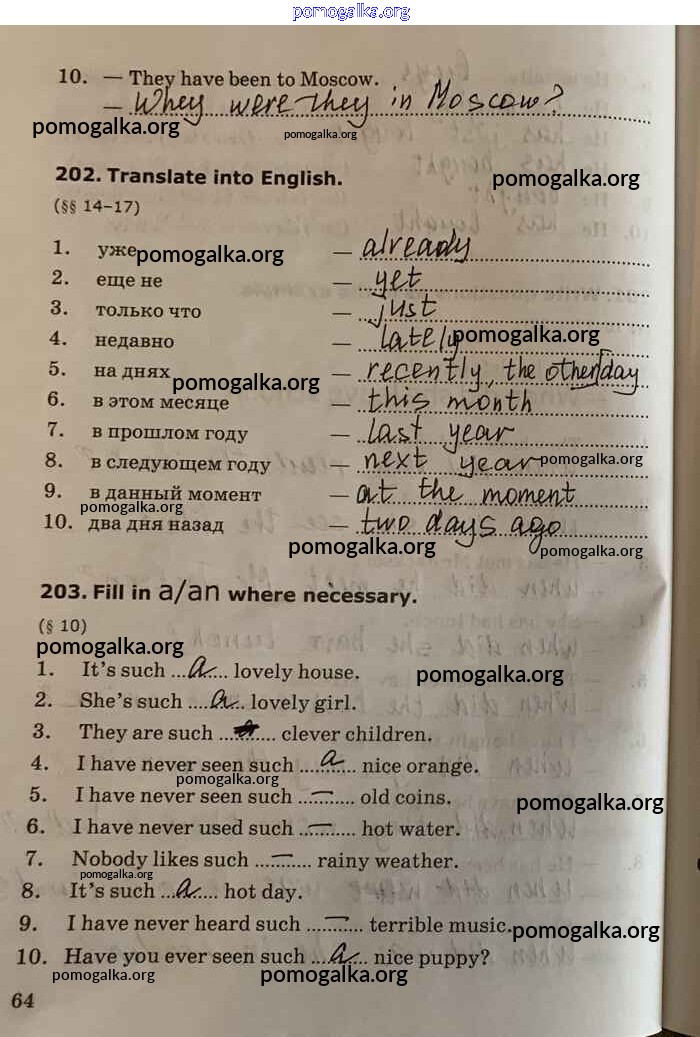 pomogalka.org
10. — They have been to Moscow.
— Whey were they in Moscow?
pomogalka.org pomogalka.org
202. Translate into English. pomogalka.org
(§§ 14–17)
1. уже pomogalka.org — already
2. еще не — yet
3. только что — just
4. недавно — lately pomogalka.org
5. на днях pomogalka.org — recently, the other day
6. в этом месяце — this month
7. в прошлом году — last year
8. в следующем году — next year pomogalka.org
9. в данный момент — at the moment
pomogalka.org
10. два дня назад — two days ago
pomogalka.org pomogalka.org
203. Fill in a/an where necessary.
(§ 10)
pomogalka.org
1. It's such ...a.... lovely house. pomogalka.org
2. She's such ....a.. lovely girl.
3. They are such ............ clever children.
4. I have never seen such ....a..... nice orange.
pomogalka.org
5. I have never seen such ...—..... old coins. pomogalka.org
6. I have never used such ...—..... hot water.
7. Nobody likes such ....—.... rainy weather.
pomogalka.org
8. It's such ...a.... hot day.
9. I have never heard such ....—.... terrible music. pomogalka.org
10. Have you ever seen such ...a.... nice puppy?
pomogalka.org pomogalka.org
64